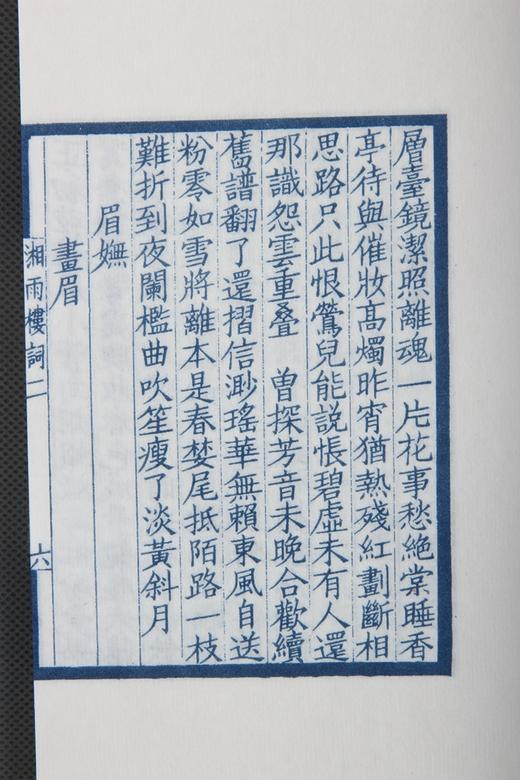 層臺鏡潔照離魂一片花事愁絶棠睡香
亭待與催妝高燭昨宵猶熱殘紅劃斷相
思路只此恨鶯兒能説悵碧虛未有人還
那識怨雲重叠　曾探芳音未晚合歡續
舊譜翻了還摺信渺瑤華無賴東風自送
粉零如雪將離本是春婪尾抵陌路一枝
難折到夜闌檻曲吹笙瘦了淡黃斜月
眉嫵
畫眉
湘雨樓詞二
六